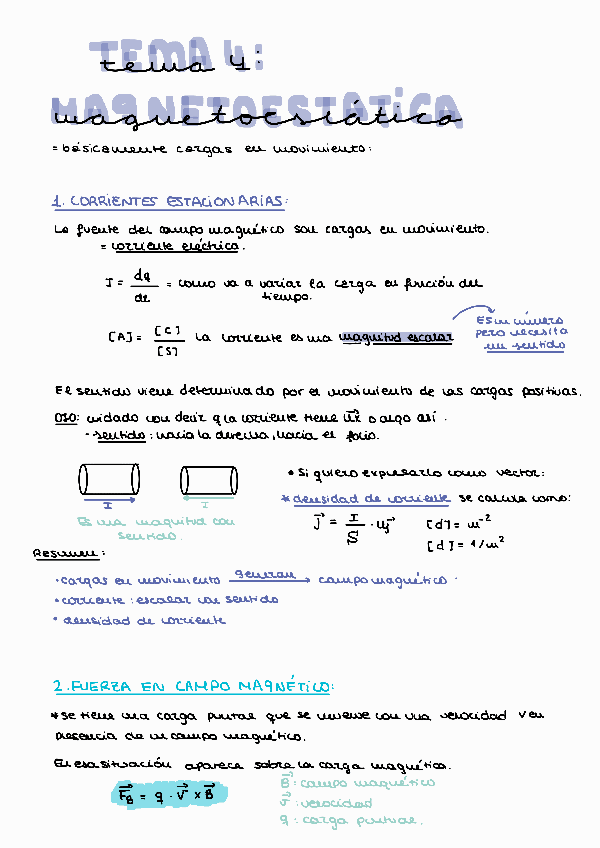 TEMA 4:
tema 4
MAGNETOESTÁTICA
magnetoestática
= básicamente cargas en movimiento:
1. CORRIENTES ESTACIONARIAS:
La fuente del campo magnético son cargas en movimiento.
= corriente eléctrica.
I = dq / dt = como va a variar la carga en función del tiempo.
[A] = [C] / [S] La corriente es una magnitud escalar
Es un número
pero necesita
un sentido
El sentido viene determinado por el movimiento de las cargas positivas.
OJO: cuidado con decir q la corriente tiene u⃗x o algo así.
- sentido: hacia la derecha, hacia el folio.
I I
Es una magnitud con
sentido.
• Si quiero expresarlo como vector:
* densidad de corriente se calcula como:
J⃗ = I / S · u⃗J [d] = m⁻²
[d] = 1/m²
Resumen:
· cargas en movimiento generan → campo magnético
· corriente: escalar con sentido
· densidad de corriente
2. FUERZA EN CAMPO MAGNÉTICO:
* se tiene una carga puntual que se mueve con una velocidad v en
presencia de un campo magnético.
En esa situación aparece sobre la carga magnética.
F⃗B = q · v⃗ × B⃗
B⃗: campo magnético
v⃗: velocidad
q: carga puntual.